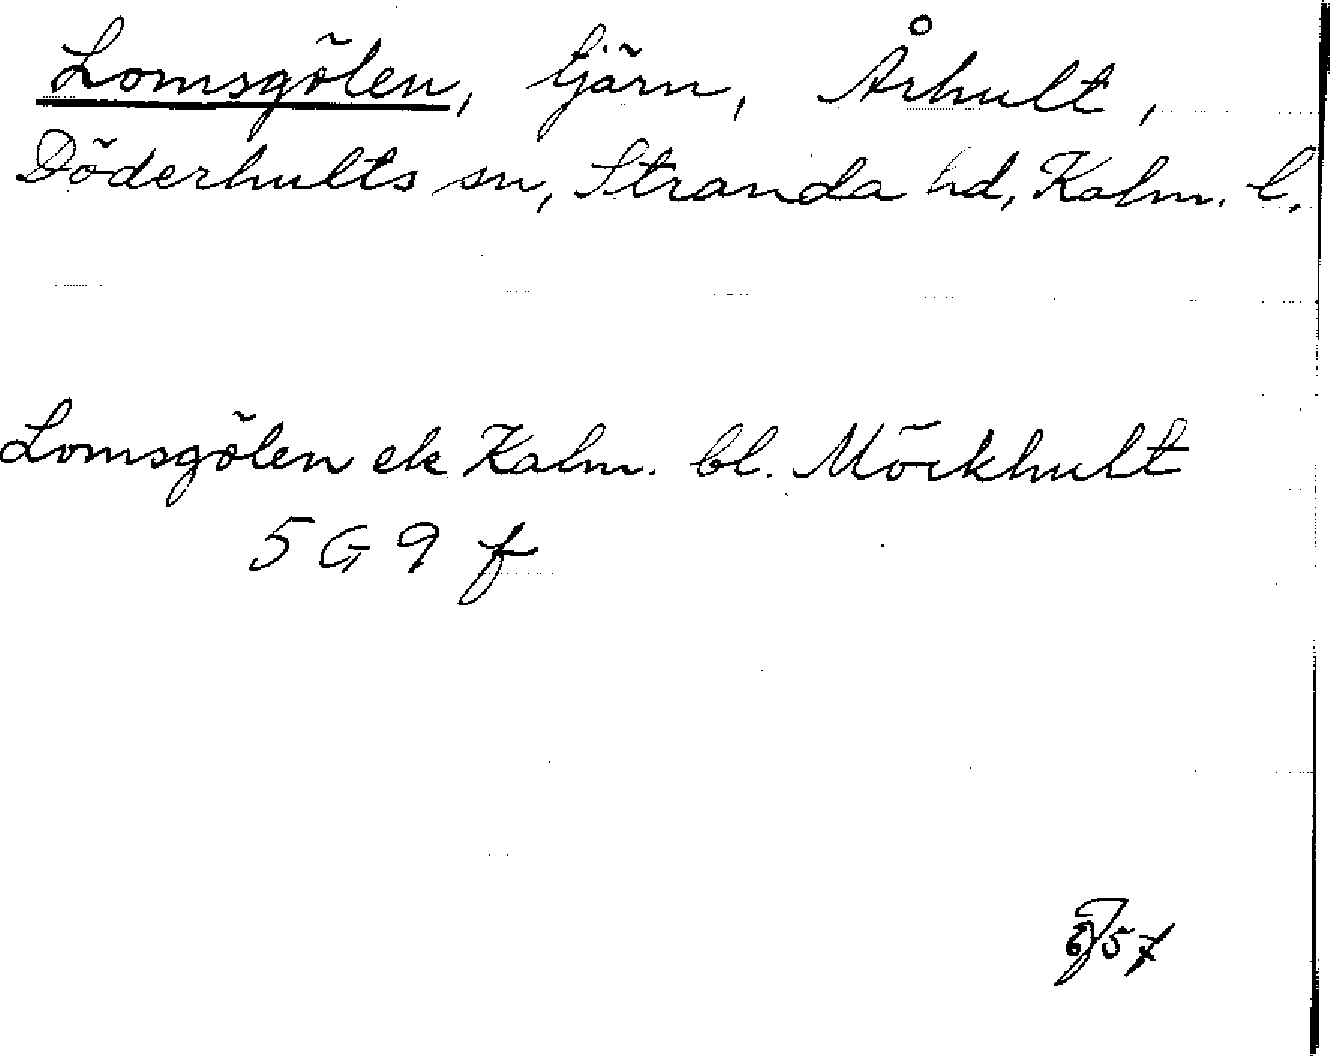 Lomsgölen, tjärn, Århult,
Döderhults sn, Stranda hd, Kalm. l.
Lomsgölen ek Kalm. bl. Mörkhult
5 G 9 f